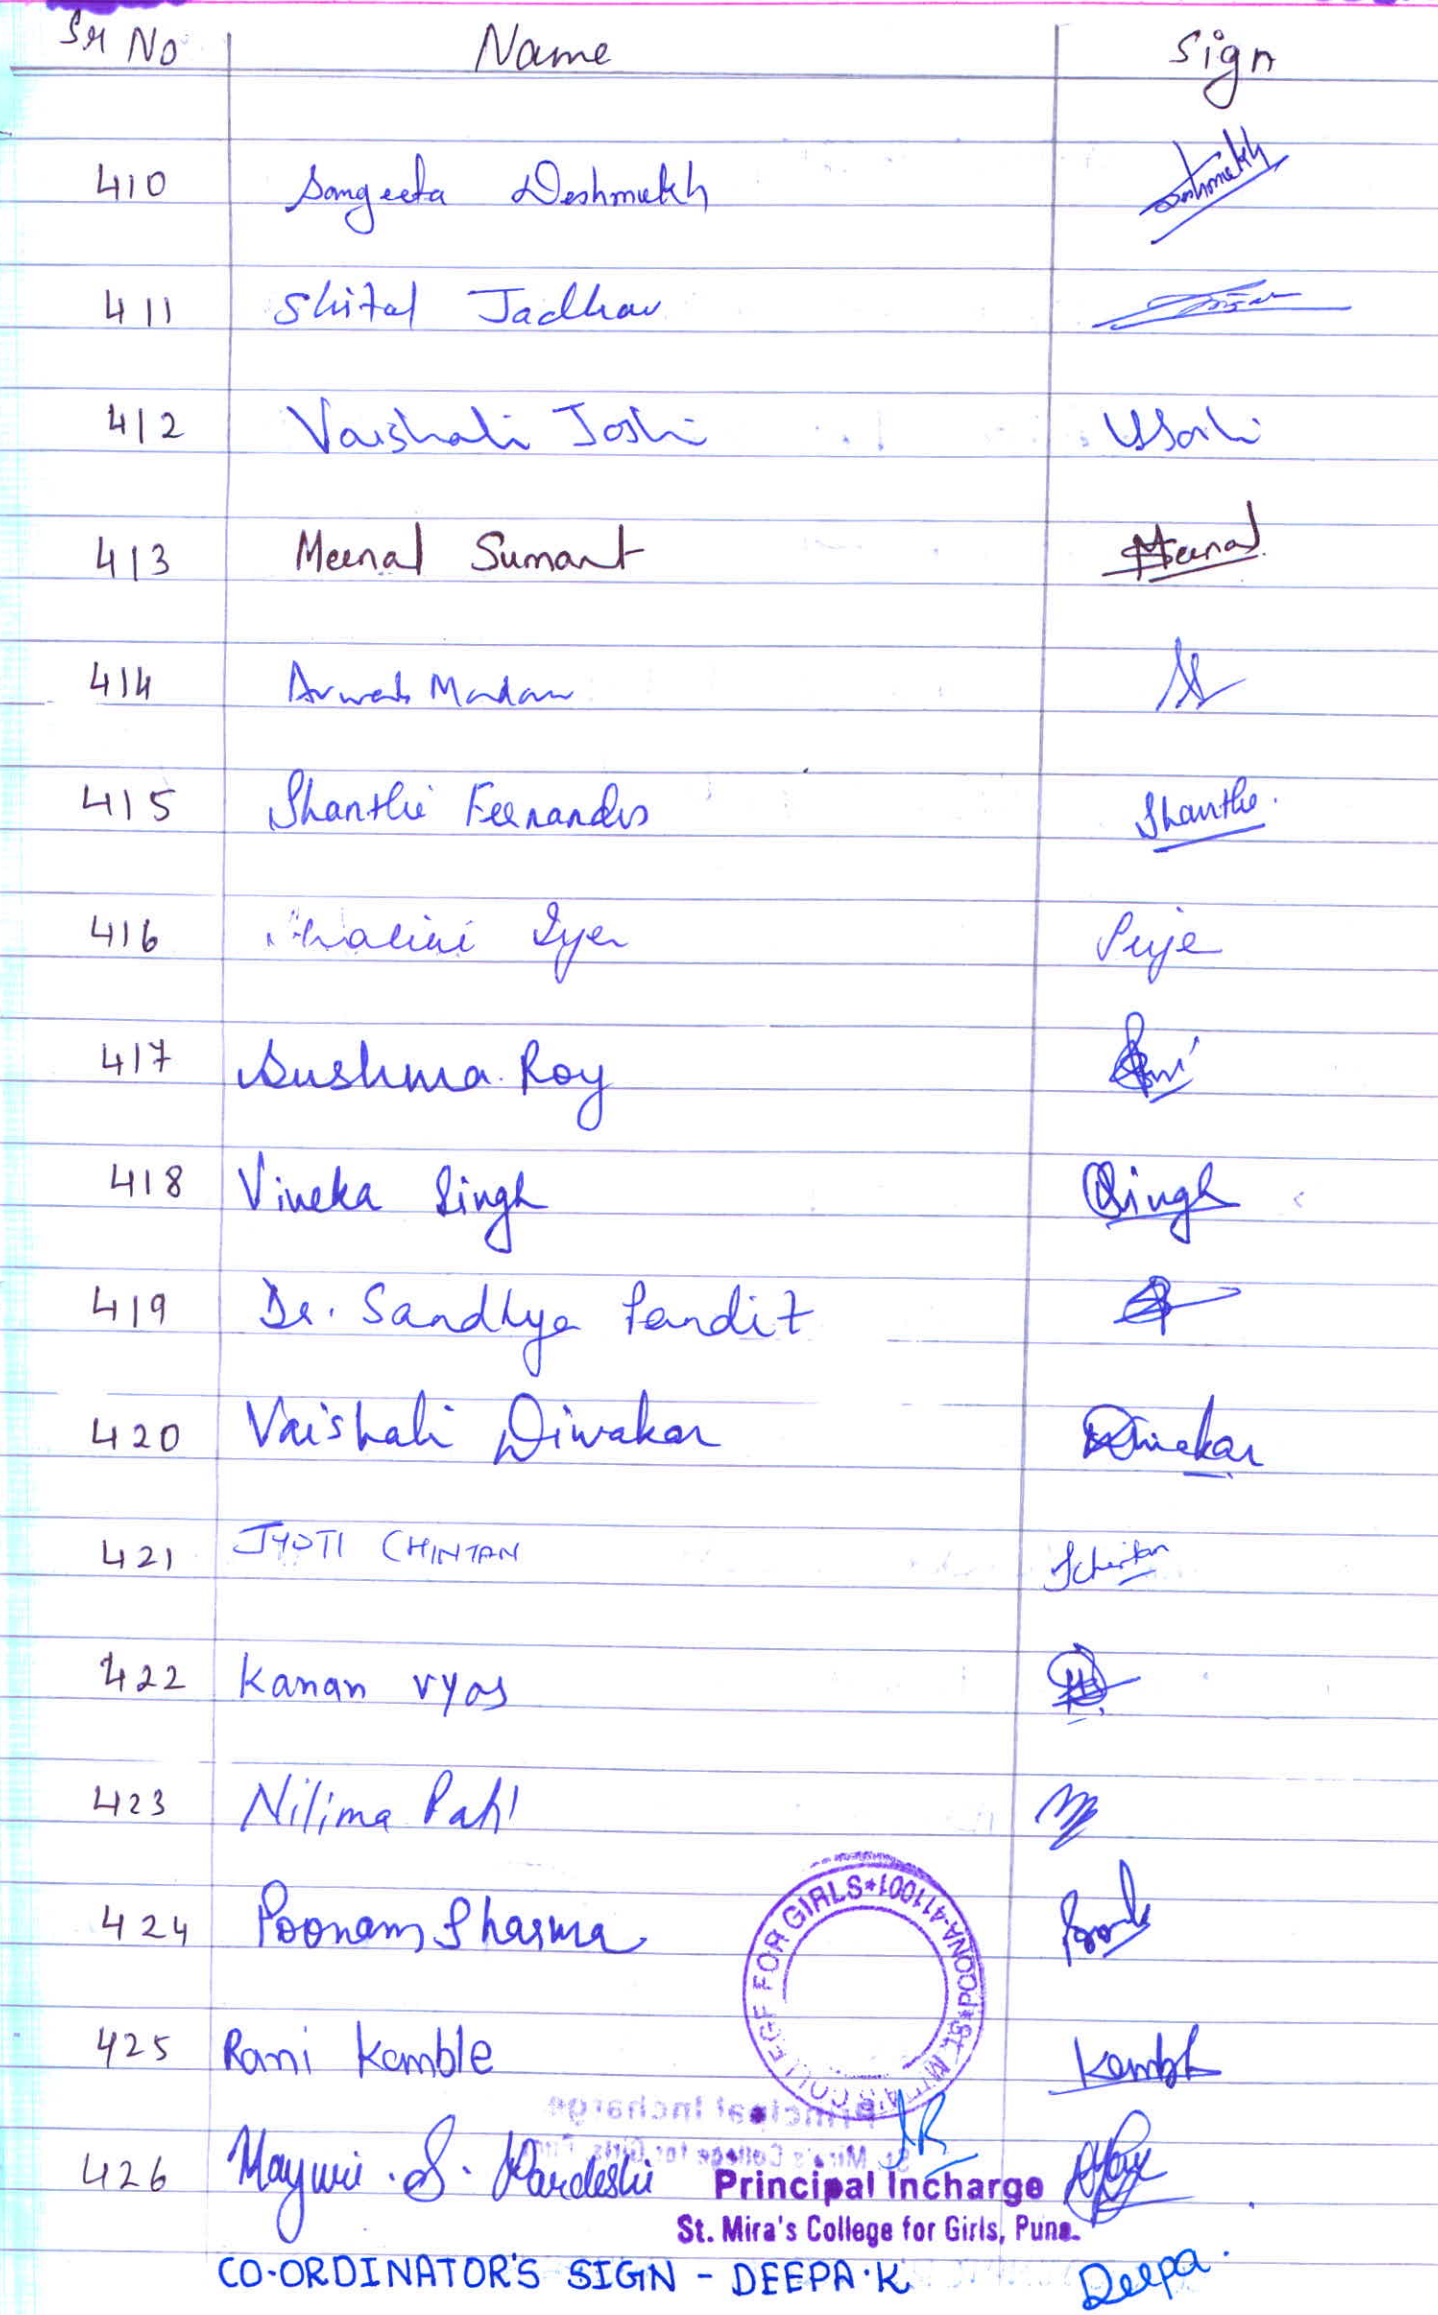 Sr No Name Sign
410 Sangeeta Deshmukh Deshmukh
411 Shital Jadhav
412 Vaishali Joshi VJoshi
413 Meenal Sumant Meenal
414 Madan
415 Shanthi Fernandes Shanthi.
416 Iyer
417 Sushma Roy
418 Viveka Singh Singh
419 Dr. Sandhya Pandit
420 Vaishali Diwakar Diwakar
421 JYOTI CHINTAN JChintan
422 Kanan Vyas
423 Nilima Patil
424 Poonam Sharma
425 Rani Kamble Kamble
ST. MIRA'S COLLEGE FOR GIRLS*POONA-411001*
426 Mayuri .S. Pardeshi
Principal Incharge
St. Mira's College for Girls, Pune.
CO-ORDINATOR'S SIGN - DEEPA.K Deepa.